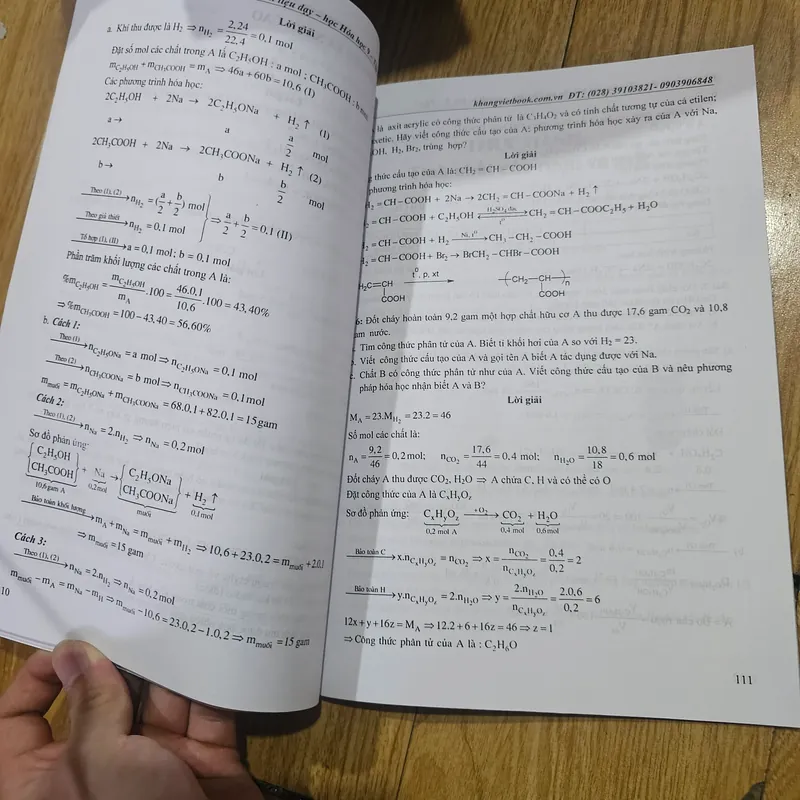 dạy – học Hóa học 9
Lời giải
a. Khí thu được là H₂ ⇒ n_H₂ = 2,24/22,4 = 0,1 mol
Đặt số mol các chất trong A là C₂H₅OH : a mol ; CH₃COOH : b mol
m_C₂H₅OH + m_CH₃COOH = m_A ⇒ 46a + 60b = 10,6 (I)
Các phương trình hóa học:
2C₂H₅OH + 2Na → 2C₂H₅ONa + H₂ ↑ (1)
a → a a/2 mol
2CH₃COOH + 2Na → 2CH₃COONa + H₂ ↑ (2)
b → b b/2 mol
Theo (1), (2) → n_H₂ = (a/2 + b/2) mol
Theo giả thiết → n_H₂ = 0,1 mol
⇒ a/2 + b/2 = 0,1 (II)
Tổ hợp (I), (II) → a = 0,1 mol; b = 0,1 mol
Phần trăm khối lượng các chất trong A là:
%m_C₂H₅OH = m_C₂H₅OH/m_A .100 = 46.0,1/10,6 .100 = 43,40%
⇒ %m_CH₃COOH = 100 – 43,40 = 56,60%
b. Cách 1:
Theo (1) → n_C₂H₅ONa = a mol ⇒ n_C₂H₅ONa = 0,1 mol
Theo (2) → n_CH₃COONa = b mol ⇒ n_CH₃COONa = 0,1 mol
m_muối = m_C₂H₅ONa + m_CH₃COONa = 68.0,1 + 82.0,1 = 15 gam
Cách 2:
Theo (1), (2) → n_Na = 2.n_H₂ ⇒ n_Na = 0,2 mol
Sơ đồ phản ứng:
{C₂H₅OH CH₃COOH} + Na → {C₂H₅ONa CH₃COONa} + H₂ ↑
10,6 gam A 0,2 mol muối 0,1 mol
Bảo toàn khối lượng → m_A + m_Na = m_muối + m_H₂ ⇒ 10,6 + 23.0,2 = m_muối + 2.0,1
⇒ m_muối = 15 gam
Cách 3:
Theo (1), (2) → n_Na = 2.n_H₂ ⇒ n_Na = 0,2 mol
m_muối – m_A = m_Na – m_H ⇒ m_muối – 10,6 = 23.0,2 – 1.0,2 ⇒ m_muối = 15 gam
10
khangvietbook.com.vn ĐT: (028) 39103821- 0903906848
là axit acrylic có công thức phân tử là C₃H₄O₂ và có tính chất tương tự của cả etilen;
axetic. Hãy viết công thức cấu tạo của A; phương trình hóa học xảy ra của A với Na,
OH, H₂, Br₂, trùng hợp?
Lời giải
thức cấu tạo của A là: CH₂ = CH – COOH
phương trình hóa học:
= CH – COOH + 2Na → 2CH₂ = CH – COONa + H₂ ↑
= CH – COOH + C₂H₅OH ⇌ (H₂SO₄ đặc, t⁰) CH₂ = CH – COOC₂H₅ + H₂O
= CH – COOH + H₂ → (Ni, t⁰) CH₃ – CH₂ – COOH
= CH – COOH + Br₂ → BrCH₂ – CHBr – COOH
H₂C=CH COOH → (t⁰, p, xt) (CH₂ – CH)n COOH
Đốt cháy hoàn toàn 9,2 gam một hợp chất hữu cơ A thu được 17,6 gam CO₂ và 10,8
gam nước.
Tìm công thức phân tử của A. Biết tỉ khối hơi của A so với H₂ = 23.
Viết công thức cấu tạo của A và gọi tên A biết A tác dụng được với Na.
Chất B có công thức phân tử như của A. Viết công thức cấu tạo của B và nêu phương
pháp hóa học nhận biết A và B?
Lời giải
M_A = 23.M_H₂ = 23.2 = 46
Số mol các chất là:
n_A = 9,2/46 = 0,2 mol; n_CO₂ = 17,6/44 = 0,4 mol; n_H₂O = 10,8/18 = 0,6 mol
Đốt cháy A thu được CO₂, H₂O ⇒ A chứa C, H và có thể có O
Đặt công thức của A là CₓHᵧO_z
Sơ đồ phản ứng: CₓHᵧO_z → (+O₂) CO₂ + H₂O
0,2 mol A 0,4 mol 0,6 mol
Bảo toàn C → x.n_CₓHᵧO_z = n_CO₂ ⇒ x = n_CO₂/n_CₓHᵧO_z = 0,4/0,2 = 2
Bảo toàn H → y.n_CₓHᵧO_z = 2.n_H₂O ⇒ y = 2.n_H₂O/n_CₓHᵧO_z = 2.0,6/0,2 = 6
12x + y + 16z = M_A ⇒ 12.2 + 6 + 16z = 46 ⇒ z = 1
⇒ Công thức phân tử của A là : C₂H₆O
111